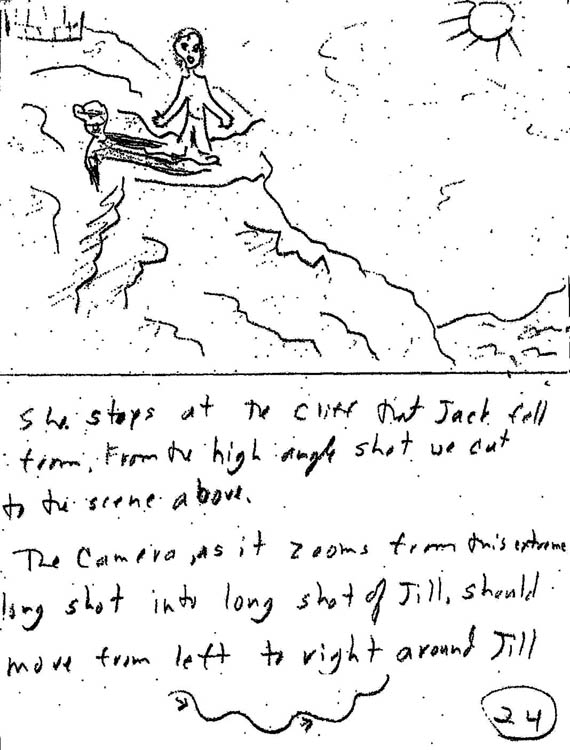 She stops at the cliff that Jack fell
from. From the high angle shot we cut
to the scene above.
The Camera, as it zooms from this extreme
long shot into long shot of Jill, should
move from left to right around Jill
24